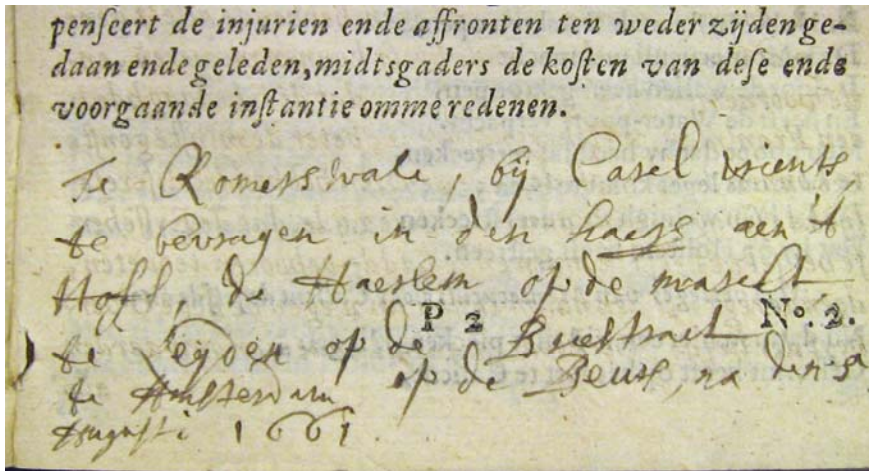 penſeert de injurien ende affronten ten weder zijden ge-
daan ende geleden, midtsgaders de koſten van deſe ende
voorgaande inſtantie omme redenen.
Te Romerswale, bij Carel
te bevragen in den haegh aen 't
Hoff, de Haerlem op de marct
P 2 No. 2.
te Leyden op de Breestraet
te Amsterdam op de Beurs, na den
Augusti 1661.